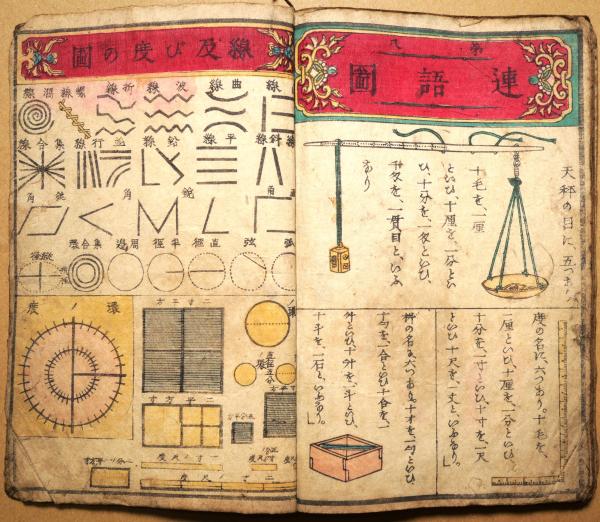 第八
連語圖
天秤の目に、五つあり、
十毛を、一厘
といひ、十厘を、一分とい
ひ、十分を、一匁といひ、
千匁を、一貫目と、いふ
なり
度の名に、六つあり。十毛を、
一厘といひ十厘を、一分といひ
十分を、一寸といひ十寸を、一尺
といひ十尺を、一丈と、いふなり。
桝の名、六つあり十才を、一勺といひ
十勺を、一合といひ十合を、
一升といひ十升を、一斗といひ、
十斗を、一石と、いふなり。
線及び度の圖
曲線 波線 折線 螺線 渦線
斜線 平線 鉛線 並行線 集合線
鋭角 鈍角
弧 弦 直徑 半徑 周邊 集合環
環ノ度
二寸平方
直徑五分
二平方寸
一寸ノ尺度